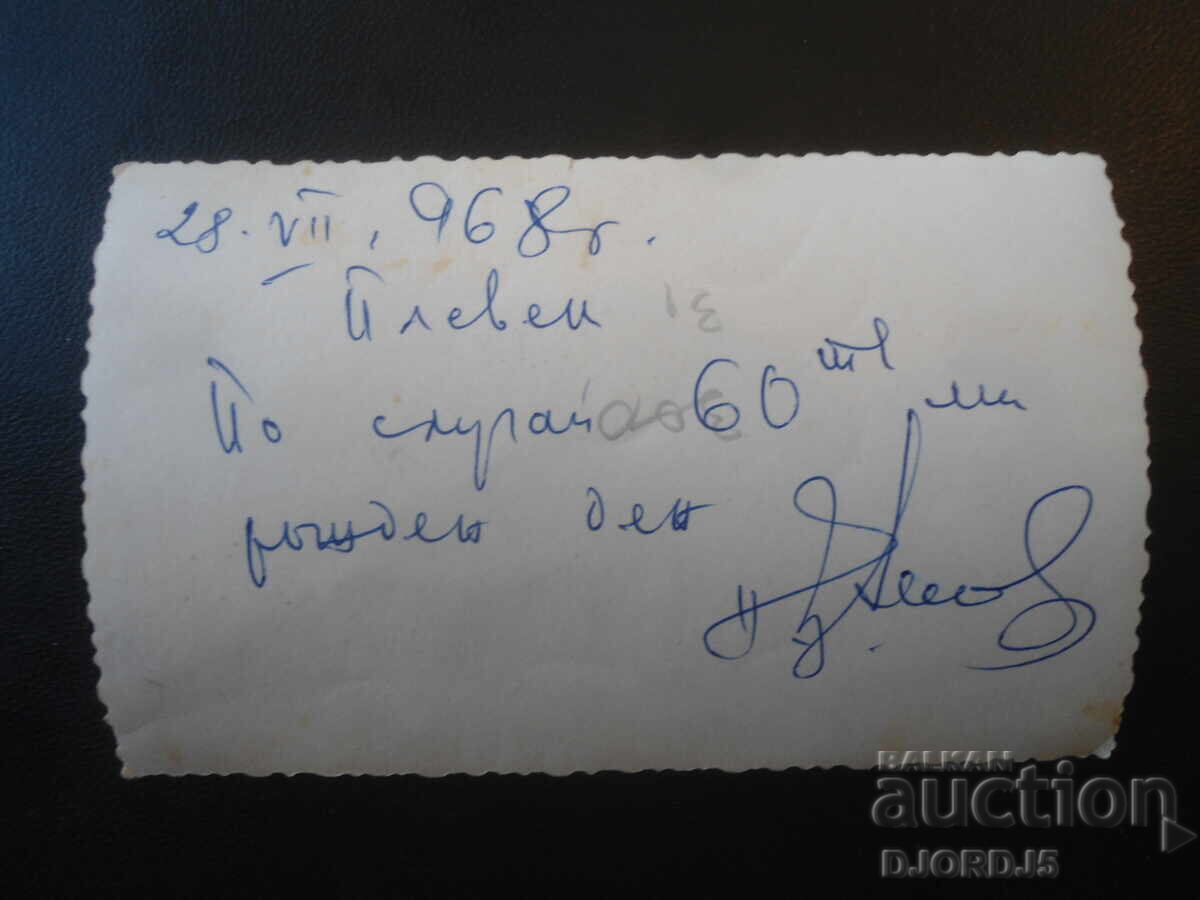 28. VII, 968 г.
Плевен
По случай 60тия ми
рожден ден
BALKAN
auction
DJORDJ5